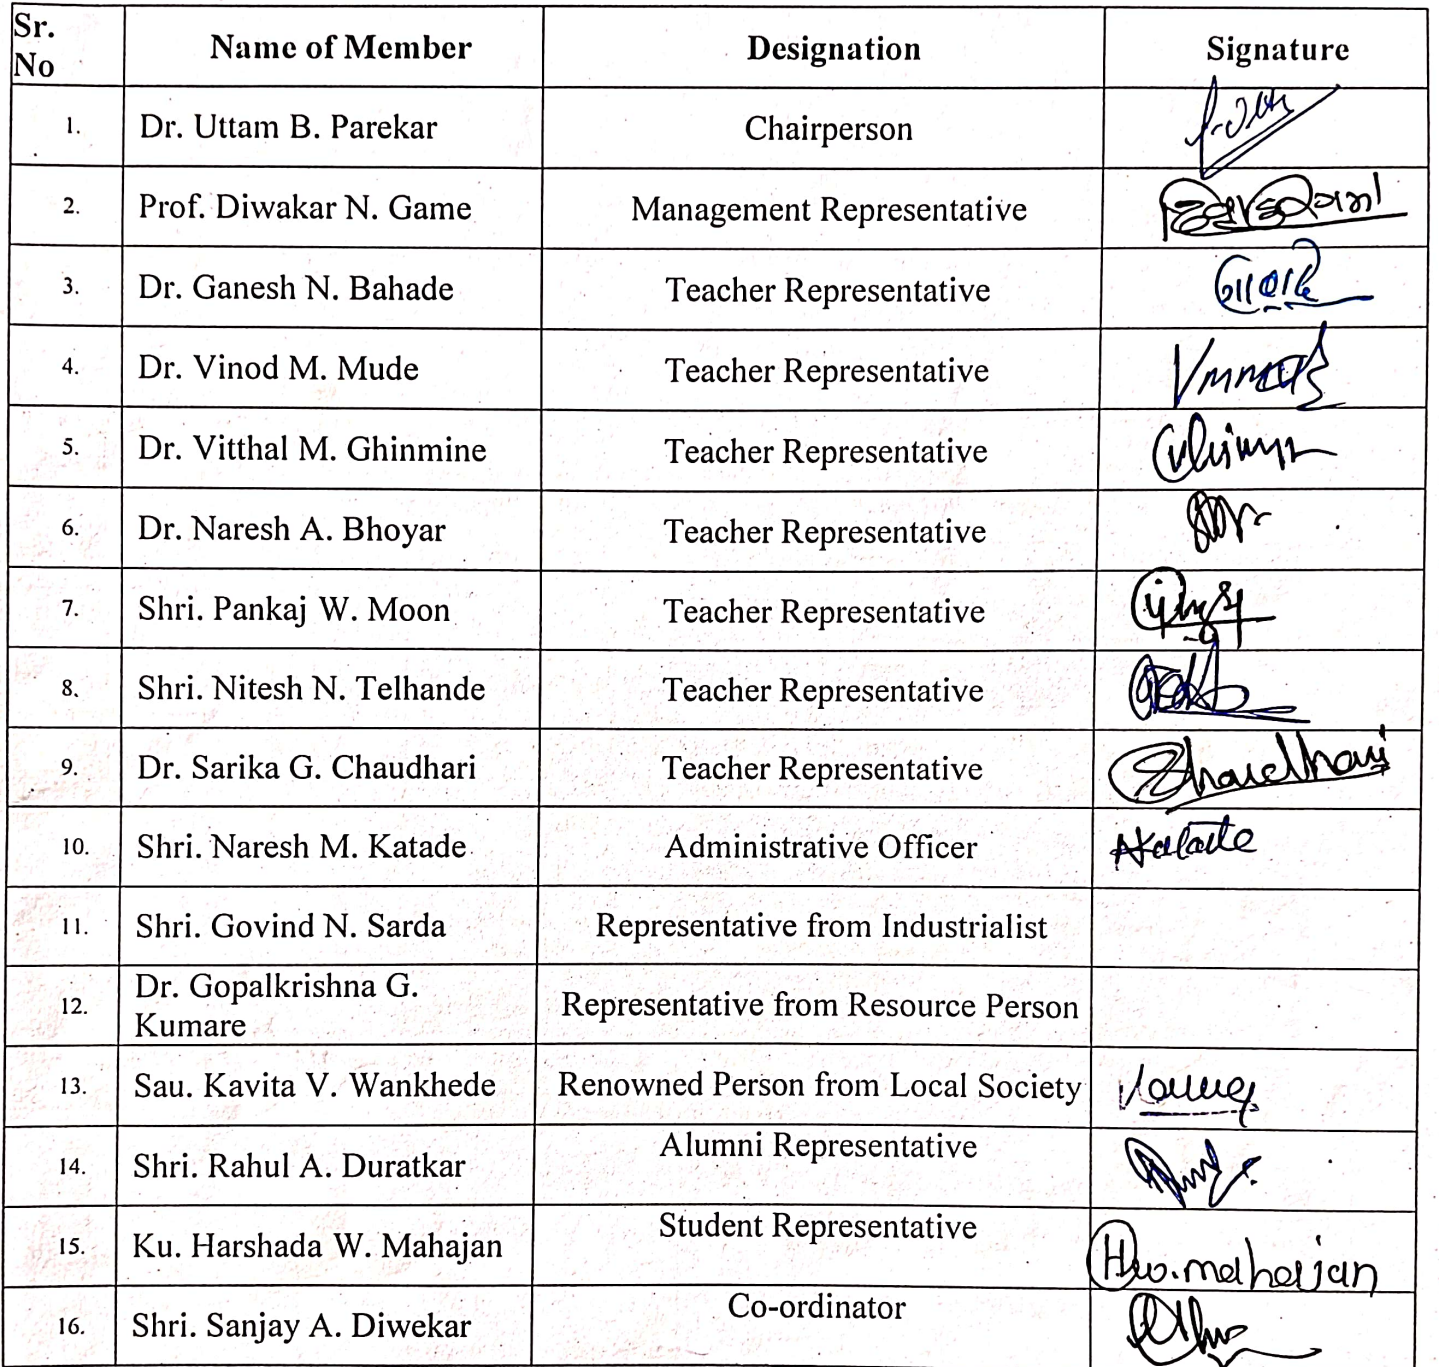 Sr. No Name of Member Designation Signature
1. Dr. Uttam B. Parekar Chairperson
2. Prof. Diwakar N. Game Management Representative
3. Dr. Ganesh N. Bahade Teacher Representative
4. Dr. Vinod M. Mude Teacher Representative
5. Dr. Vitthal M. Ghinmine Teacher Representative
6. Dr. Naresh A. Bhoyar Teacher Representative
7. Shri. Pankaj W. Moon Teacher Representative
8. Shri. Nitesh N. Telhande Teacher Representative
9. Dr. Sarika G. Chaudhari Teacher Representative
10. Shri. Naresh M. Katade Administrative Officer
11. Shri. Govind N. Sarda Representative from Industrialist
12. Dr. Gopalkrishna G. Kumare Representative from Resource Person
13. Sau. Kavita V. Wankhede Renowned Person from Local Society
14. Shri. Rahul A. Duratkar Alumni Representative
15. Ku. Harshada W. Mahajan Student Representative Hw. mahajan
16. Shri. Sanjay A. Diwekar Co-ordinator